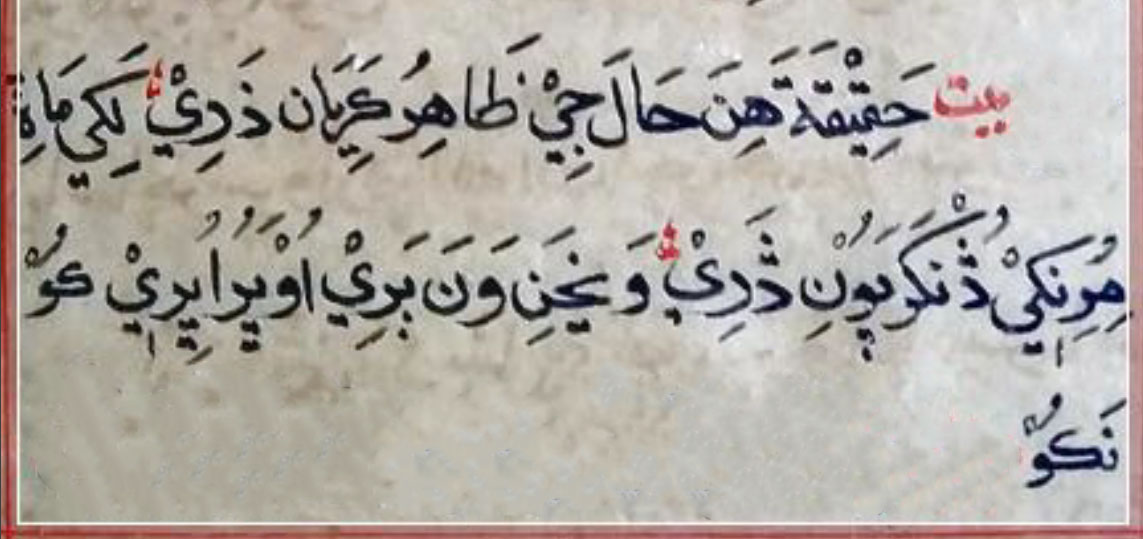 بيت حَقِيْقَةَ هِنَ حَالَ جِيْ ظَاهِرُ كَرِيَان ذَرِيْ لَكِي مَاةِ
مِرُنِكِيْ ڎُنْكَرَ پَوُنِ ڎَرِيْ وَيَخَنِ وَنَ بَرِيْ اُوْپَرُ اُپِرِيْ كوُ
نَكوُ